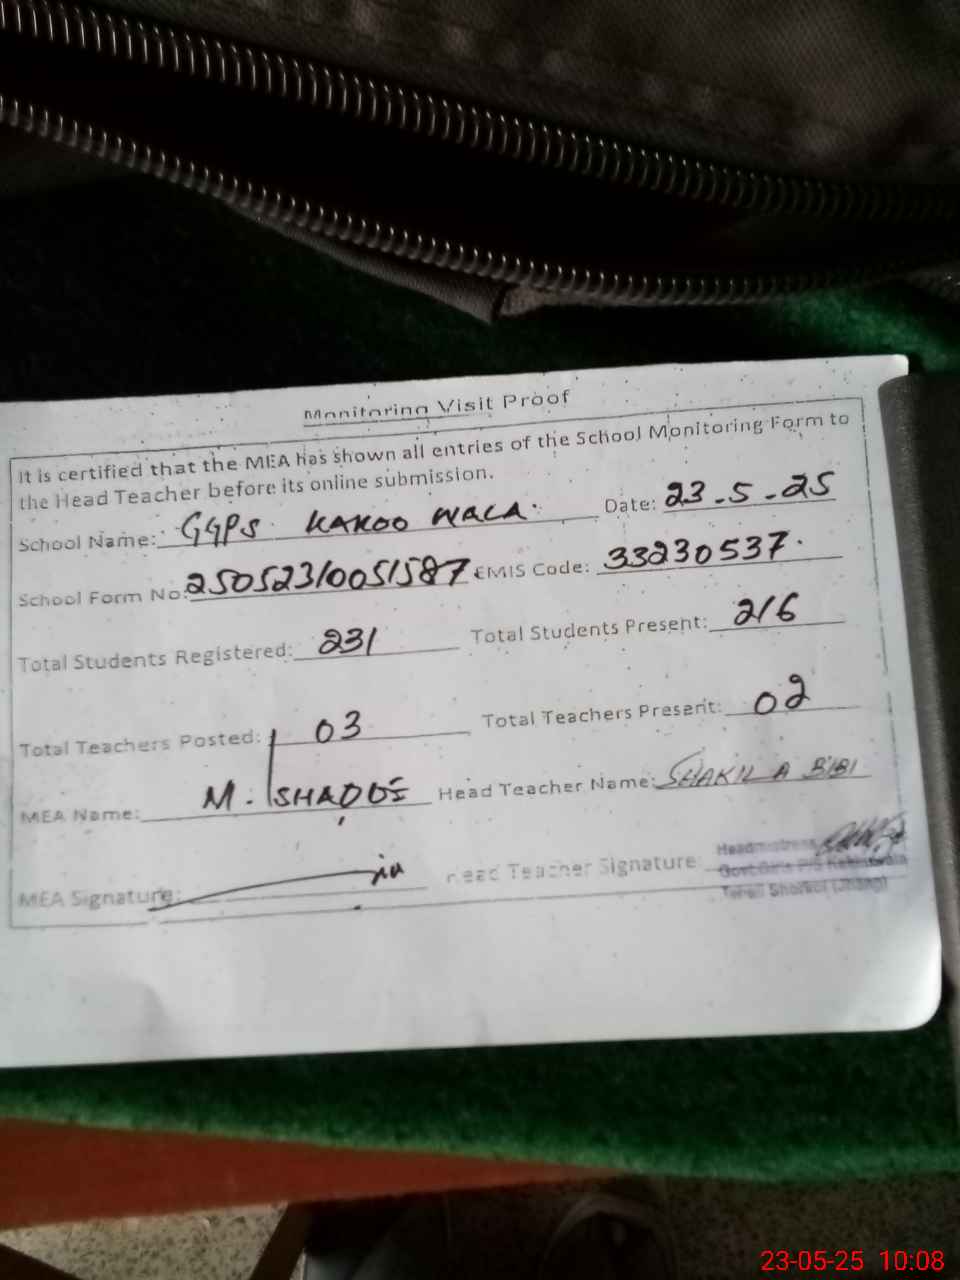 Monitoring Visit Proof
It is certified that the MEA has shown all entries of the School Monitoring Form to
the Head Teacher before its online submission.
School Name: GGPS KAKOO WALA. Date: 23-5-25
School Form No: 25052310051587 EMIS Code: 33230537.
Total Students Registered: 231 Total Students Present: 216
Total Teachers Posted: 03 Total Teachers Present: 02
MEA Name: M. Head Teacher Name: SHAKILA BIBI
MEA Signature: Head Teacher Signature:
Headmistress
Govt. Girls P/S
Tehsil Shorkot (Jhang)
23-05-25 10:08